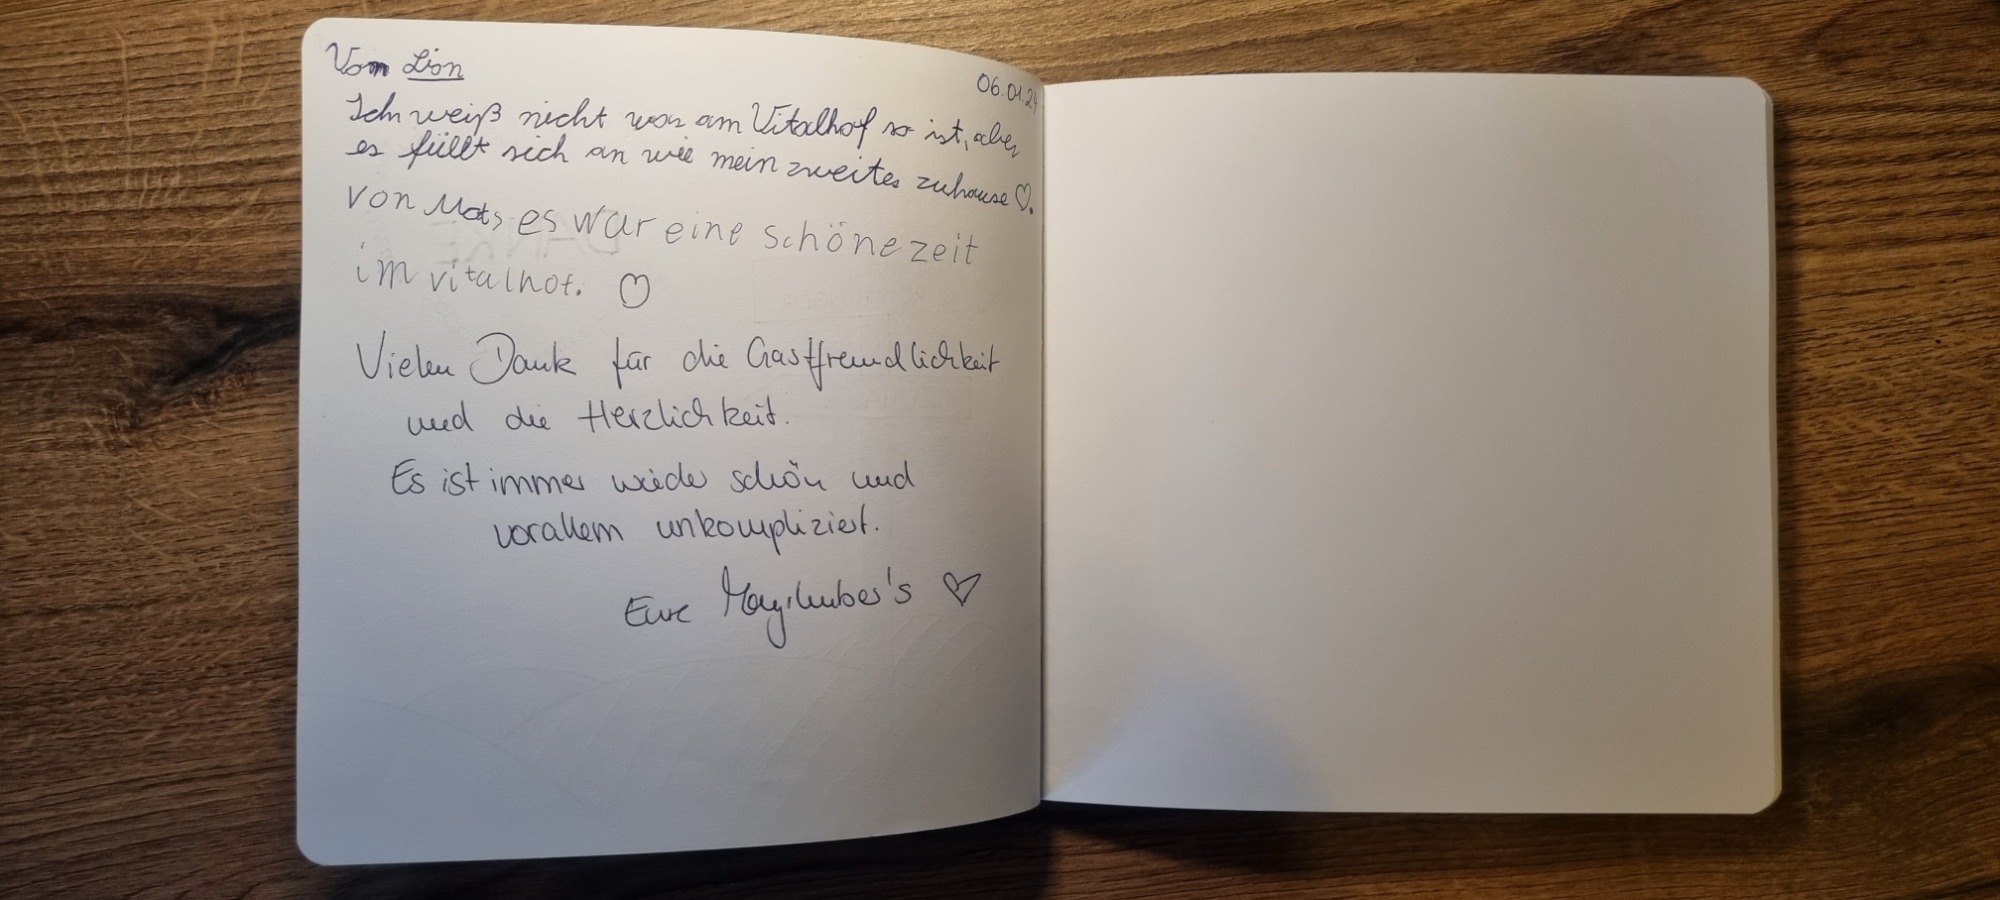 Vom Lion
06.01.24
Ich weiß nicht was am Vitalhof so ist, aber
es füllt sich an wie mein zweites zuhause ♡.
von Mats es war eine schöne zeit
im vitalhof. ♡
Vielen Dank für die Gastfreundlichkeit
und die Herzlichkeit.
Es ist immer wieder schön und
vorallem unkompliziert.
Eure ♡